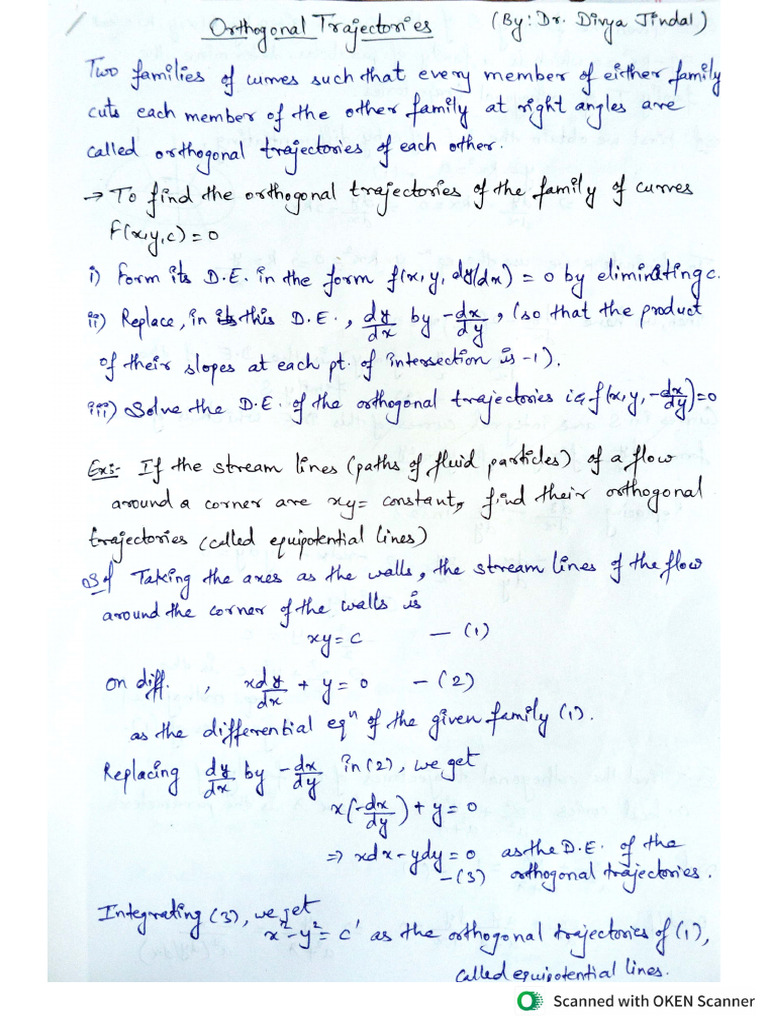 Orthogonal Trajectories (By: Dr. Divya Jindal)
Two families of curves such that every member of either family
cuts each member of the other family at right angles are
called orthogonal trajectories of each other.
→ To find the orthogonal trajectories of the family of curves
F(x,y,c)=0
i) Form its D.E. in the form f(x,y, dy/dx) = 0 by eliminating c.
ii) Replace, in this D.E., dy/dx by -dx/dy, (so that the product
of their slopes at each pt. of intersection is -1).
iii) Solve the D.E. of the orthogonal trajectories i.e. f(x,y,-dx/dy)=0
Ex:- If the stream lines (paths of fluid particles) of a flow
around a corner are xy= constant, find their orthogonal
trajectories (called equipotential lines)
Sol Taking the axes as the walls, the stream lines of the flow
around the corner of the walls is
xy=c — (1)
on diff. , x dy/dx + y = 0 — (2)
as the differential eqn of the given family (1).
Replacing dy/dx by -dx/dy in (2), we get
x(-dx/dy) + y = 0
⇒ xdx-ydy=0 as the D.E. of the
—(3) orthogonal trajectories.
Integrating (3), we get
x²-y²= c' as the orthogonal trajectories of (1),
called equipotential lines.
Scanned with OKEN Scanner